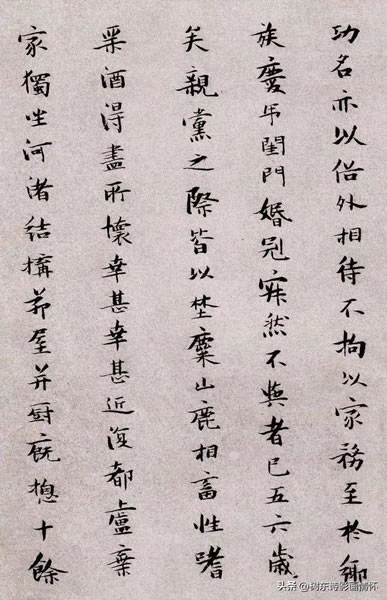 功名亦以俗外相待不拘以家務至於鄉
族慶弔閨門婚冠寂然不與者已五六歲
矣親黨之際皆以埜麋山鹿相畜性嗜
琹酒得盡所懷幸甚幸甚近復都盧棄
家獨坐河渚結構茅屋并厨廐揔十餘
头条 @树东诗影画情怀